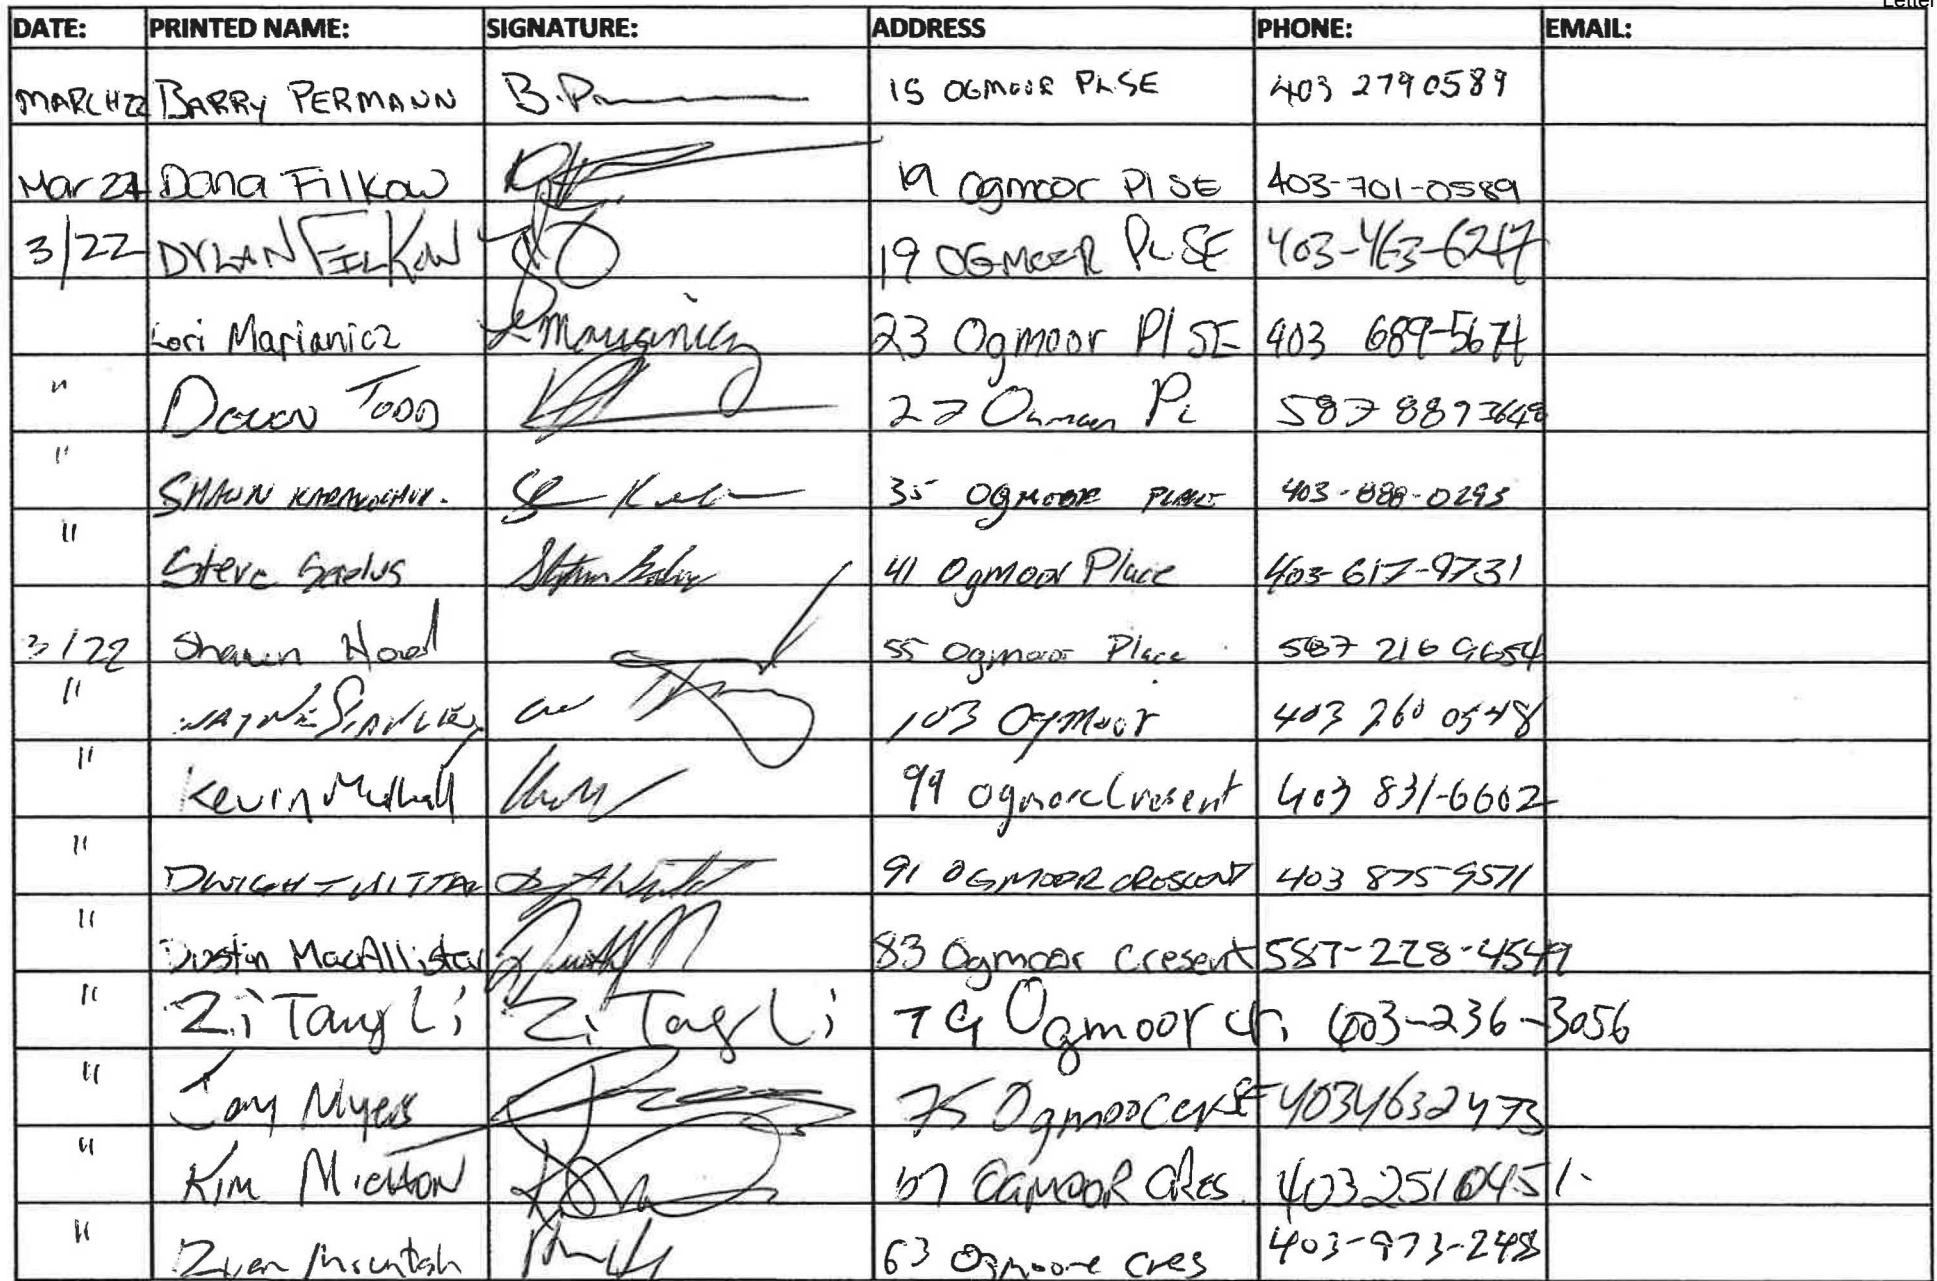 Letter
DATE: PRINTED NAME: SIGNATURE: ADDRESS PHONE: EMAIL:
MARCH 22 BARRY PERMANN B.P 15 OGMOOR PL SE 403 279 0589
Mar 22 Dana Filkow 19 Ogmoor Pl SE 403-701-0589
3/22 DYLAN FILKOW 19 OGMOOR PL SE 403-463-6247
Lori Marianicz L Marianicz 23 Ogmoor Pl SE 403 689-5674
" TODD Pl 587 889 3648
" SHAUN 35 OGMOOR PLACE 403-888-0293
" Steve 41 Ogmoor Place 403-617-9731
3/22 Shawn 55 Ogmoor Place 587 216 9654
" WAYNE 103 Ogmoor 403 260 0548
" Kevin Mulhall 99 Ogmore Cresent 403 831-6602
" DWIGHT 91 OGMOOR CRESCENT 403 875 9571
" Dustin MacAllister 83 Ogmoor Cresent 587-228-4549
" Zi Tang Li Zi Tag Li 79 Ogmoor cr. 403-236-3056
" Myers 75 Ogmoor Cr SE 403 463 2473
" Kim OGMOOR CRES. 403 251 0451
" 63 Ogmoore cres 403-973-248